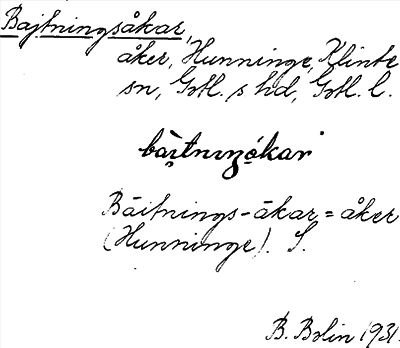 Bajtningsåkar,
åker, Hunninge, Klinte
sn, Gotl. s hd, Gotl. l.
bàitnıŋåkar
Bāitnings-ākar = åker
(Hunninge). S.
B. Bolin 1931.